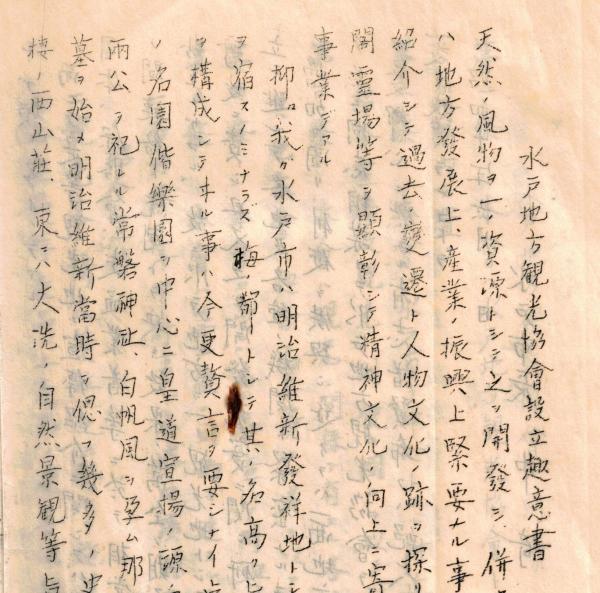 水戸地方観光協會設立趣意書
天然ノ風物ヲ一ノ資源トシテ之ヲ開發シ、併
ハ地方發展上、産業ノ振興上緊要ナル事
紹介シテ過去ノ變遷ト人物文化ノ跡ヲ探リ
閣靈場等ヲ顯彰シテ精神文化ノ向上ニ寄
事業デアル
抑々我ガ水戸市ハ明治維新發祥地トシ
ヲ宿スノミナラズ梅ノ都トシテ其ノ名高ク
ヲ構成シテヰル事ハ今更贅言ヲ要シナイ
ノ名園偕樂園ヲ中心ニ皇道宣揚ノ源
兩公ヲ祀レル常磐神社、白帆風ヲ孕ム那
墓ヲ始メ明治維新當時ヲ偲フ幾多ノ史
棲ノ西山荘、東ニハ大洗ノ自然景観等